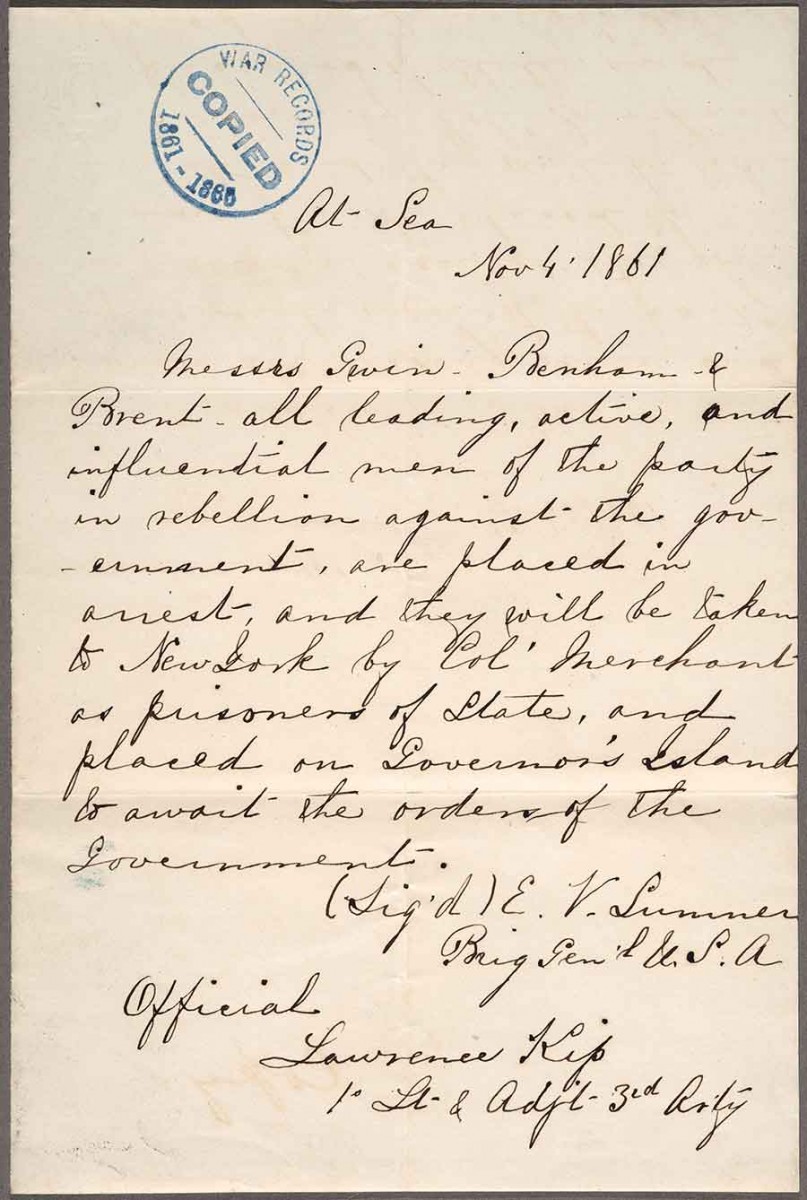 WAR RECORDS
COPIED
1861-1865
At Sea
Nov 4' 1861
Messrs Gwin - Benham - &
Brent - all leading, active, and
influential men of the party
in rebellion against the gov-
-ernment, are placed in
arrest, and they will be taken
to New York by Col' Merchant
as prisoners of State, and
placed on Governor's Island
to await the orders of the
Government.
(Sig'd) E. V. Sumner
Brig Gen'l U. S. A
Official
Lawrence Kip
1° Lt & Adj't 3rd Arty